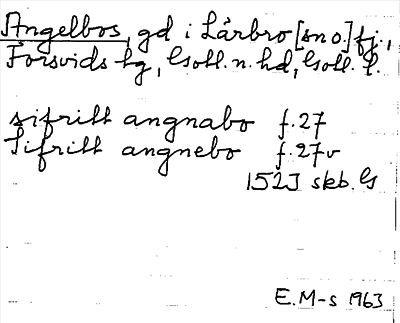 Angelbos, gd i Lärbro [sn o.] fj.,
Forsvids tg, Gotl. n. hd, Gotl. l.
sifritt angnabo f. 27
Sifritt angnebo f. 27v
1523 skb. G
E.M-s 1963